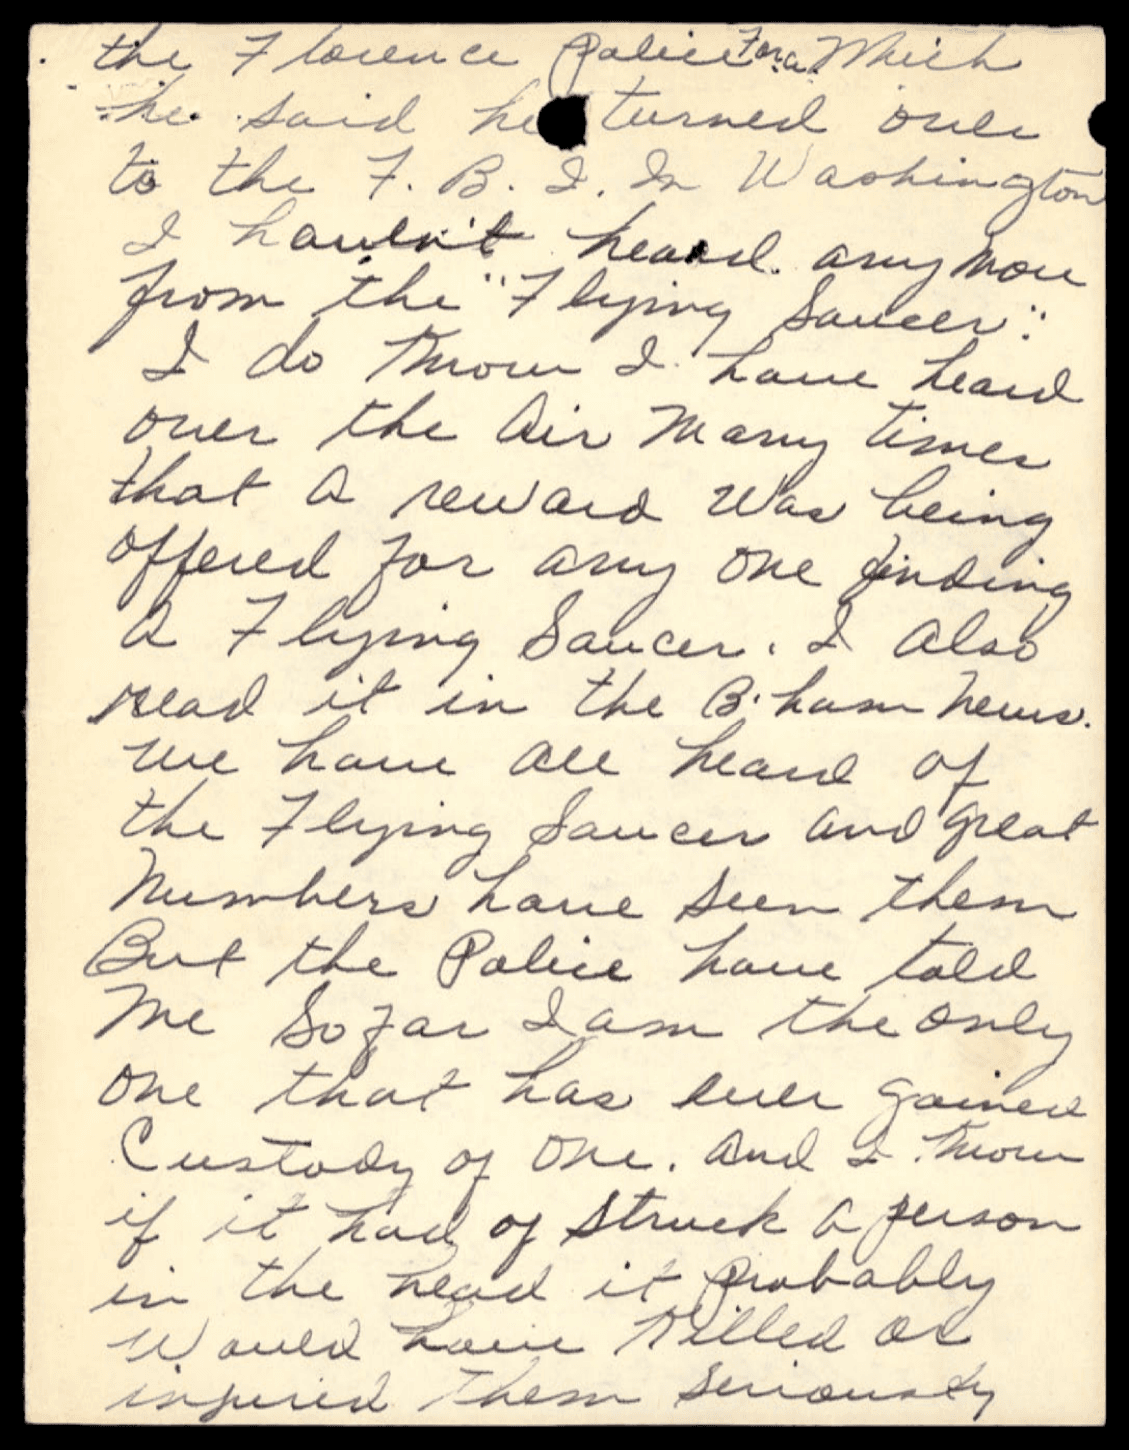 the Florence Police Fla. Which
he said he turned over
to the F. B. I. In Washington
I haven't heard any more
from the "Flying Saucer".
I do know I have heard
over the Air Many times
that a reward was being
offered for any one finding
a Flying Saucer. I also
read it in the B'ham News.
We have all heard of
the Flying Saucer and great
Numbers have seen them
But the Police have told
Me So far I am the only
one that has ever gained
Custody of One. And I know
if it had of struck a person
in the head it probably
Would have Killed or
injured them seriously